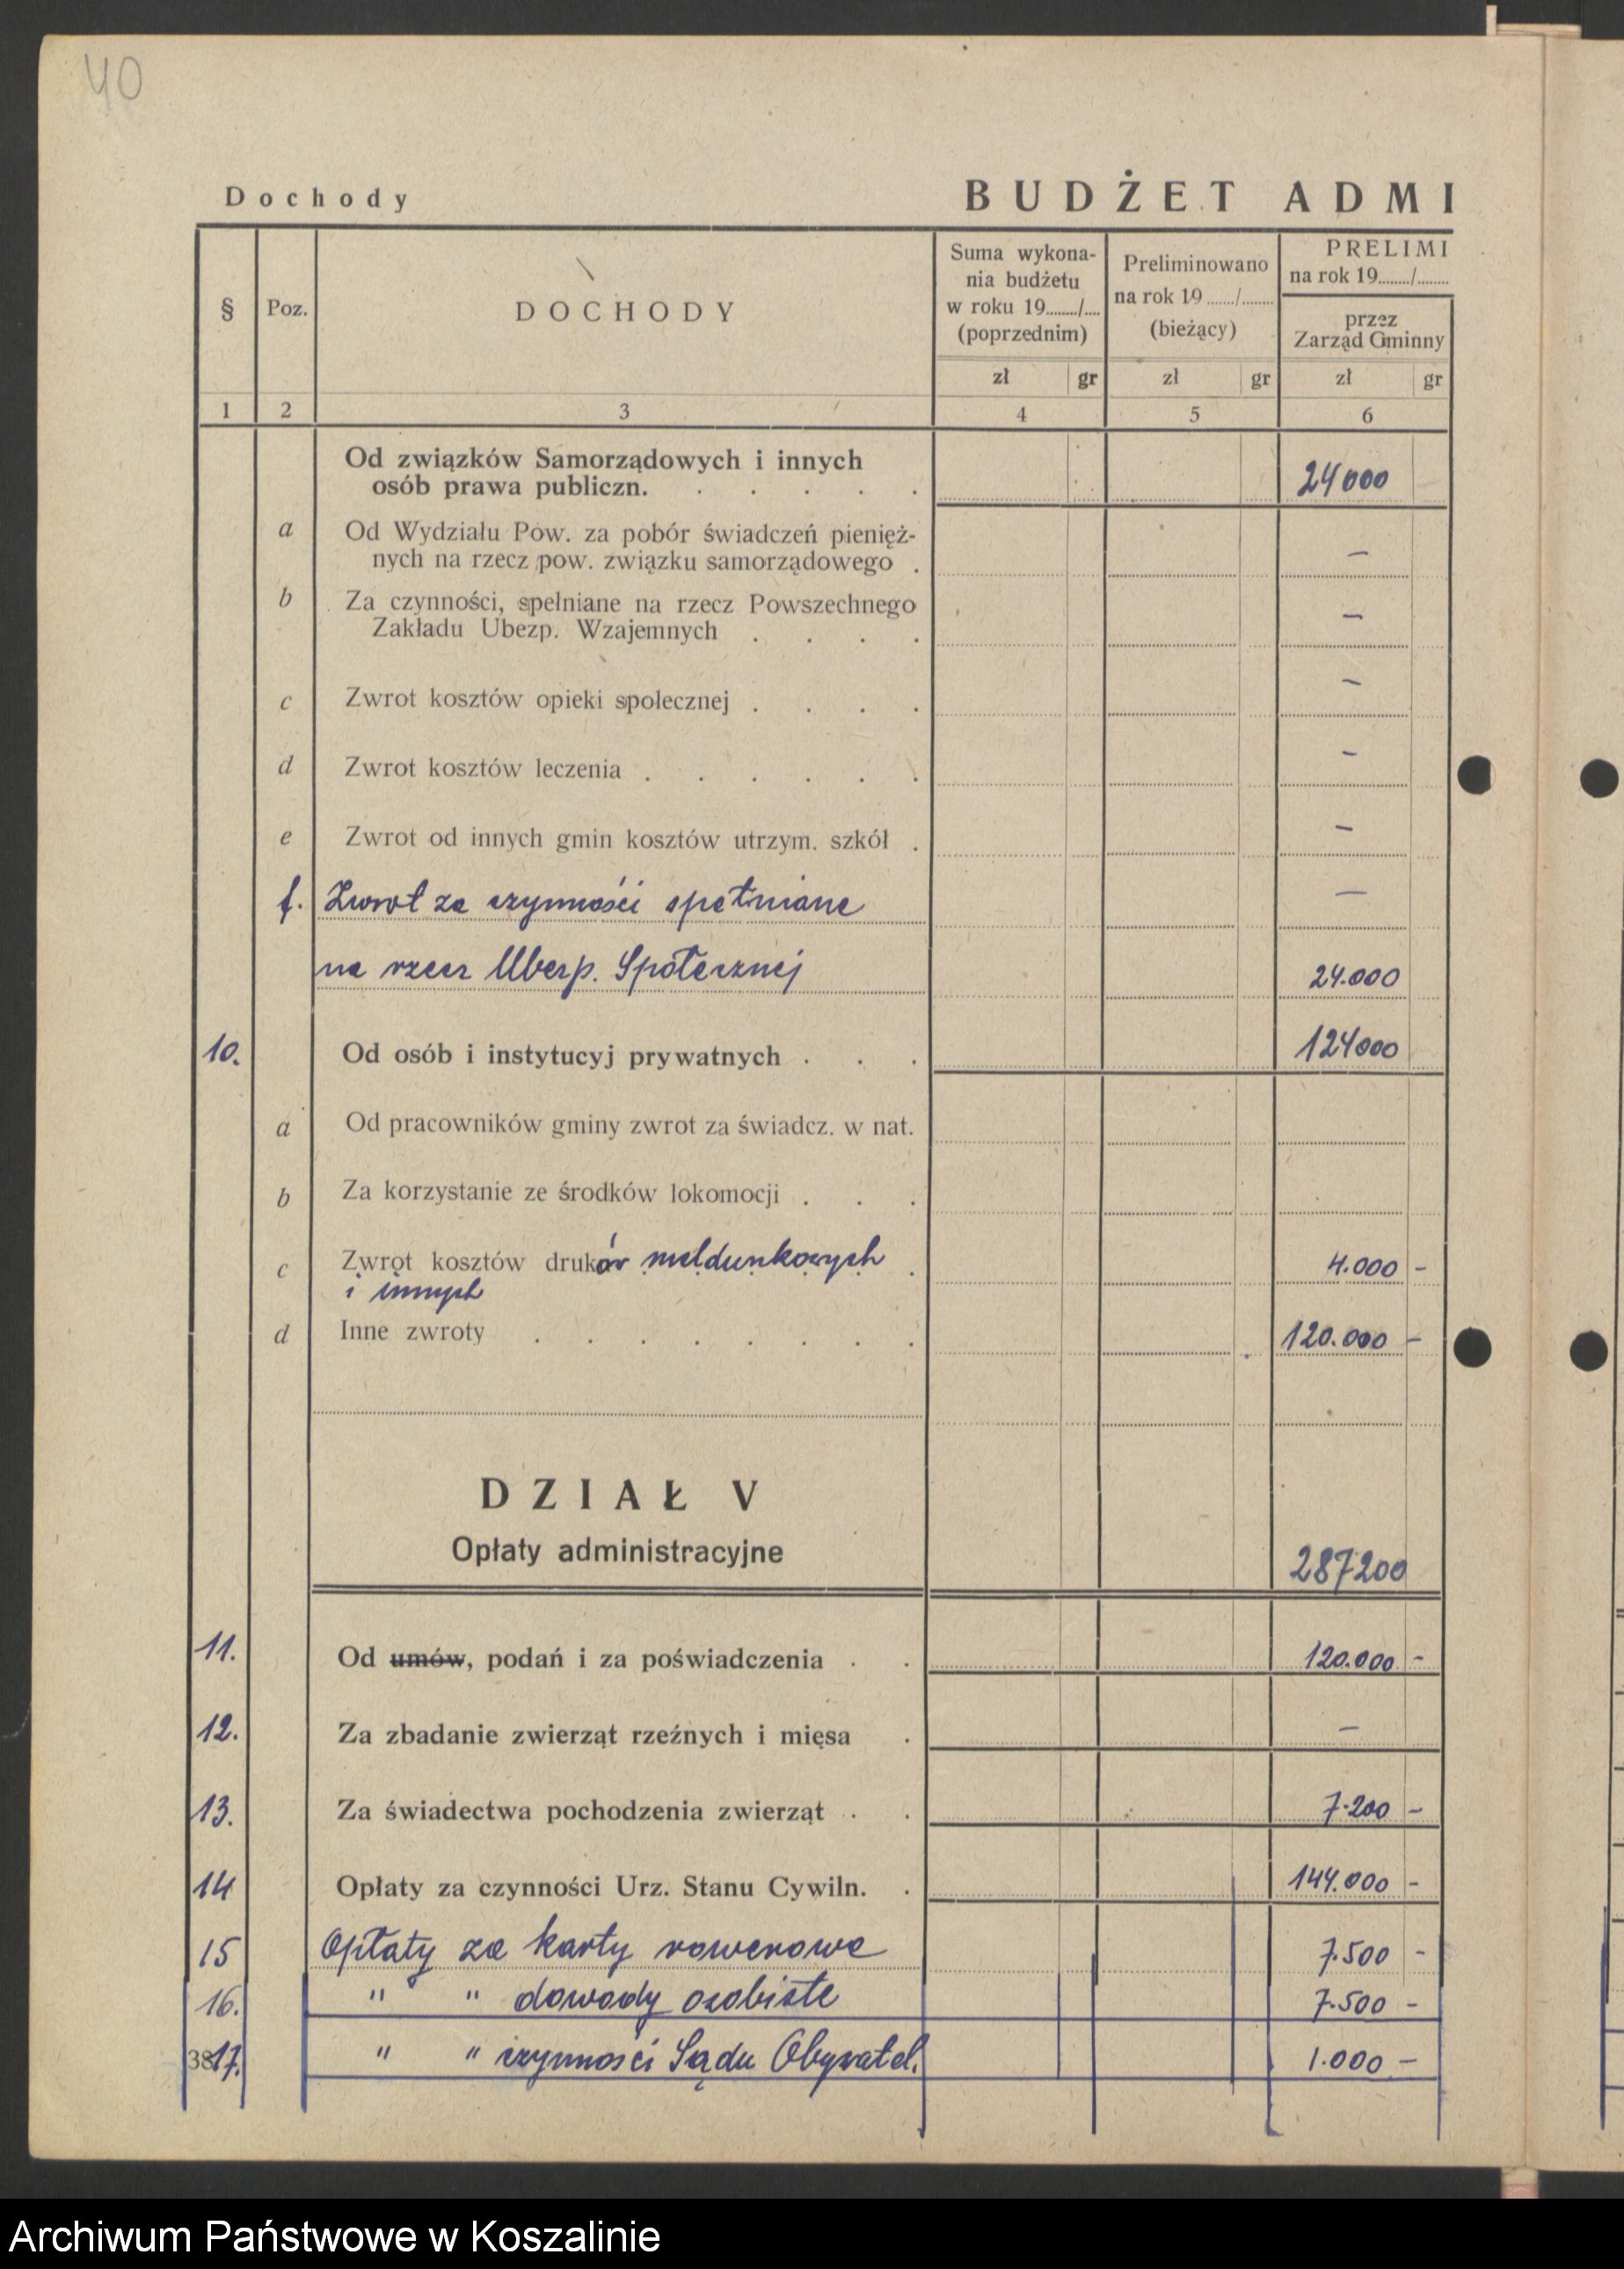 40
Dochody
BUDŻET ADMI
§
Poz.
DOCHODY
Suma wykona-
nia budżetu
w roku 19......../....
(poprzednim)
Preliminowano
na rok 19....../........
(bieżący)
PRELIMI
na rok 19......../........
przez
Zarząd Gminny
zł gr zł gr zł gr
1 2 3 4 5 6
Od związków Samorządowych i innych
osób prawa publiczn. . . . . . 24000
a Od Wydziału Pow. za pobór świadczeń pienięż-
nych na rzecz pow. związku samorządowego . –
b Za czynności, spełniane na rzecz Powszechnego
Zakładu Ubezp. Wzajemnych . . . . –
c Zwrot kosztów opieki społecznej . . . . –
d Zwrot kosztów leczenia . . . . . . –
e Zwrot od innych gmin kosztów utrzym. szkół . –
f. Zwrot za czynności spełniane –
na rzecz Ubezp. Społecznej 24.000
10. Od osób i instytucyj prywatnych . . . 124000
a Od pracowników gminy zwrot za świadcz. w nat.
b Za korzystanie ze środków lokomocji . . .
c Zwrot kosztów druków meldunkowych . 4.000 –
i innych
d Inne zwroty . . . . . . . . 120.000 –
DZIAŁ V
Opłaty administracyjne
287200
11. Od umów, podań i za poświadczenia . . 120.000 –
12. Za zbadanie zwierząt rzeźnych i mięsa . –
13. Za świadectwa pochodzenia zwierząt . . 7.200 –
14 Opłaty za czynności Urz. Stanu Cywiln. . 144.000 –
15 Opłaty za karty rowerowe 7.500 –
16. " " dowody osobiste 7.500 –
38 17. " " czynności Sądu Obywatel. 1.000 –
Archiwum Państwowe w Koszalinie